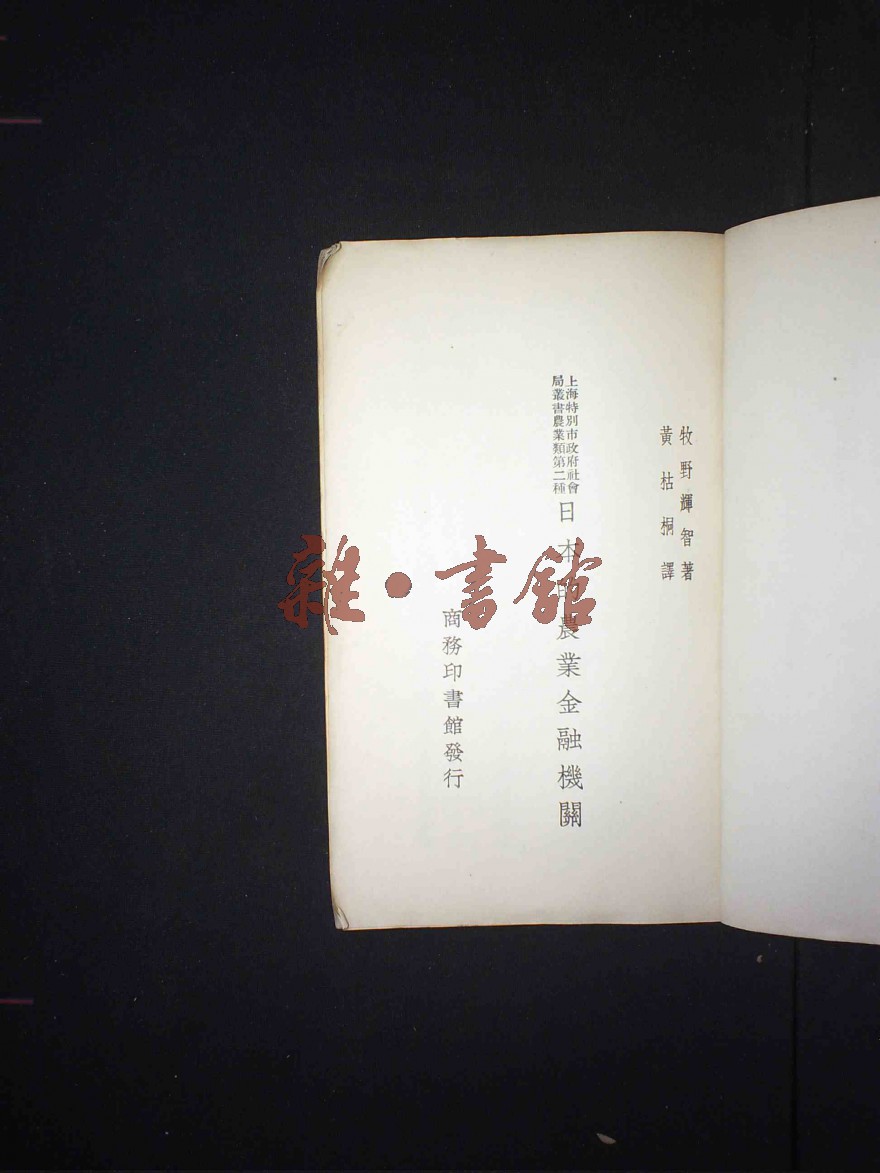 牧野輝智著
黃枯桐譯
上海特別市政府社會
局叢書農業類第二種
日本的農業金融機關
商務印書館發行
雜·書館